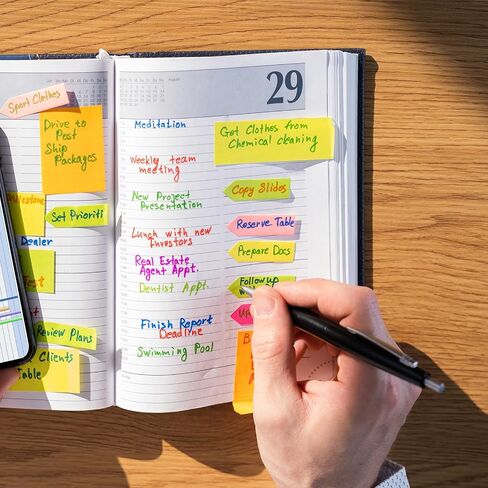 Sport Clothes
Drive to
Post
Ship
Packages
Set Prioriti
Dealer
Review Plans
Clients
Table
August
29
Meditation
Get Clothes from
Chemical cleaning
Weekly team
meeting
Copy Slides
New Project
Presentation
Reserve Table
Lunch with new
Investors
Prepare Docs
Real Estate
Agent Appt.
Dentist Appt.
Follow up
Finish Report
Deadline
Swimming Pool